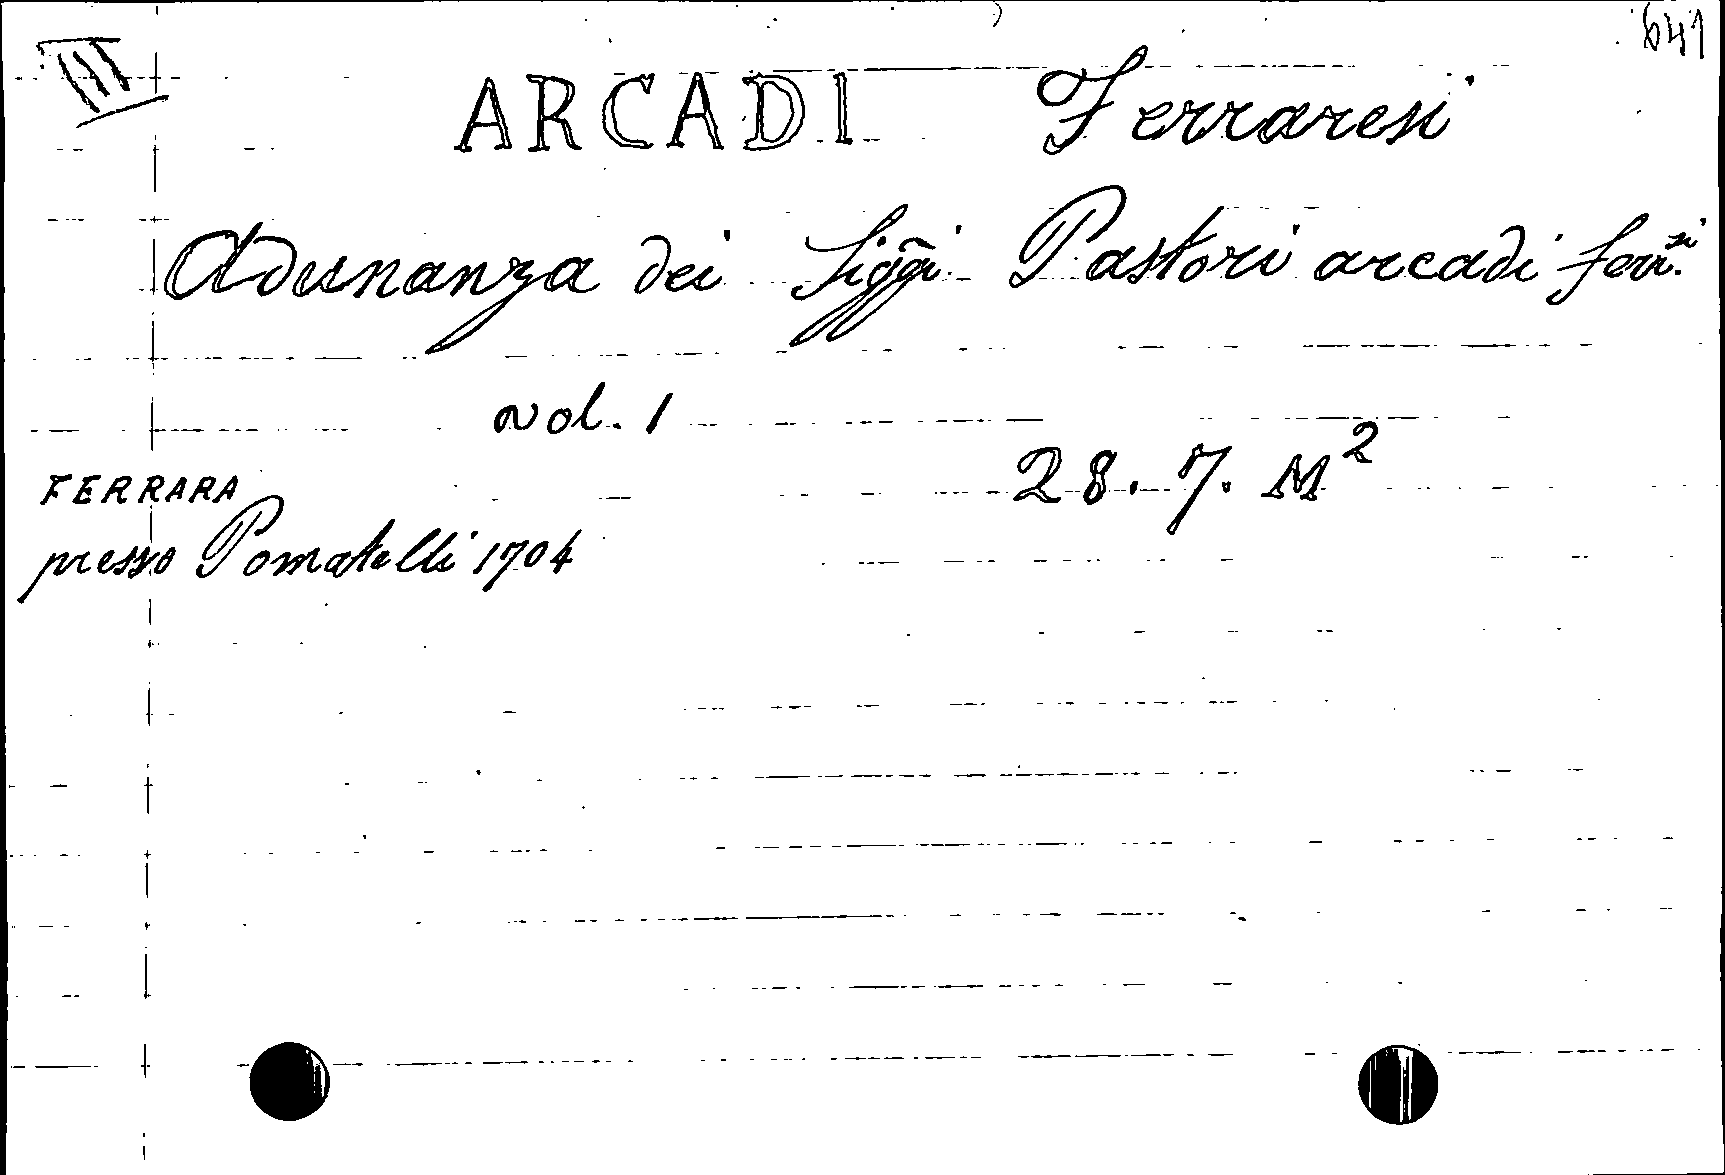 641
III
ARCADI Ferraresi
Adunanza dei Sigg̃i Pastori arcadi ferr.si
vol. 1
28. 7. M²
FERRARA
presso Pomatelli 1704